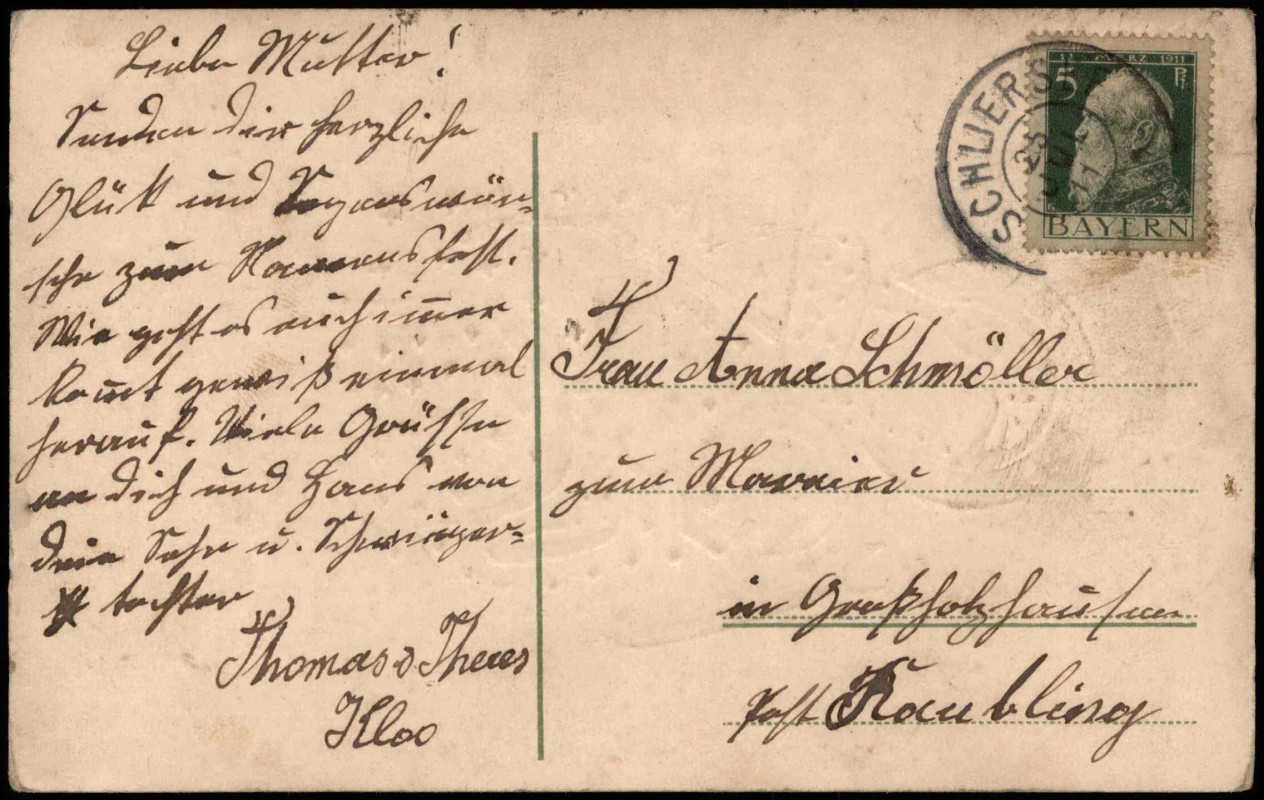 Liebe Mutter!
Senden dir herzliche
Glük und Segenswün-
sche zum Namensfest.
Wie geht es euch immer
komt gewiß einmal
herauf. Viele Grüsse
an dich und Hans von
dein Sohn u. Schwieger=
tochter
Thomas & Theres
Kloo
SCHLIERS
25
JUL
11
12. MÄRZ 1911
5 Pf.
BAYERN
Frau Anna Schmöller
zum
in Großholzhausen
Post Raubling